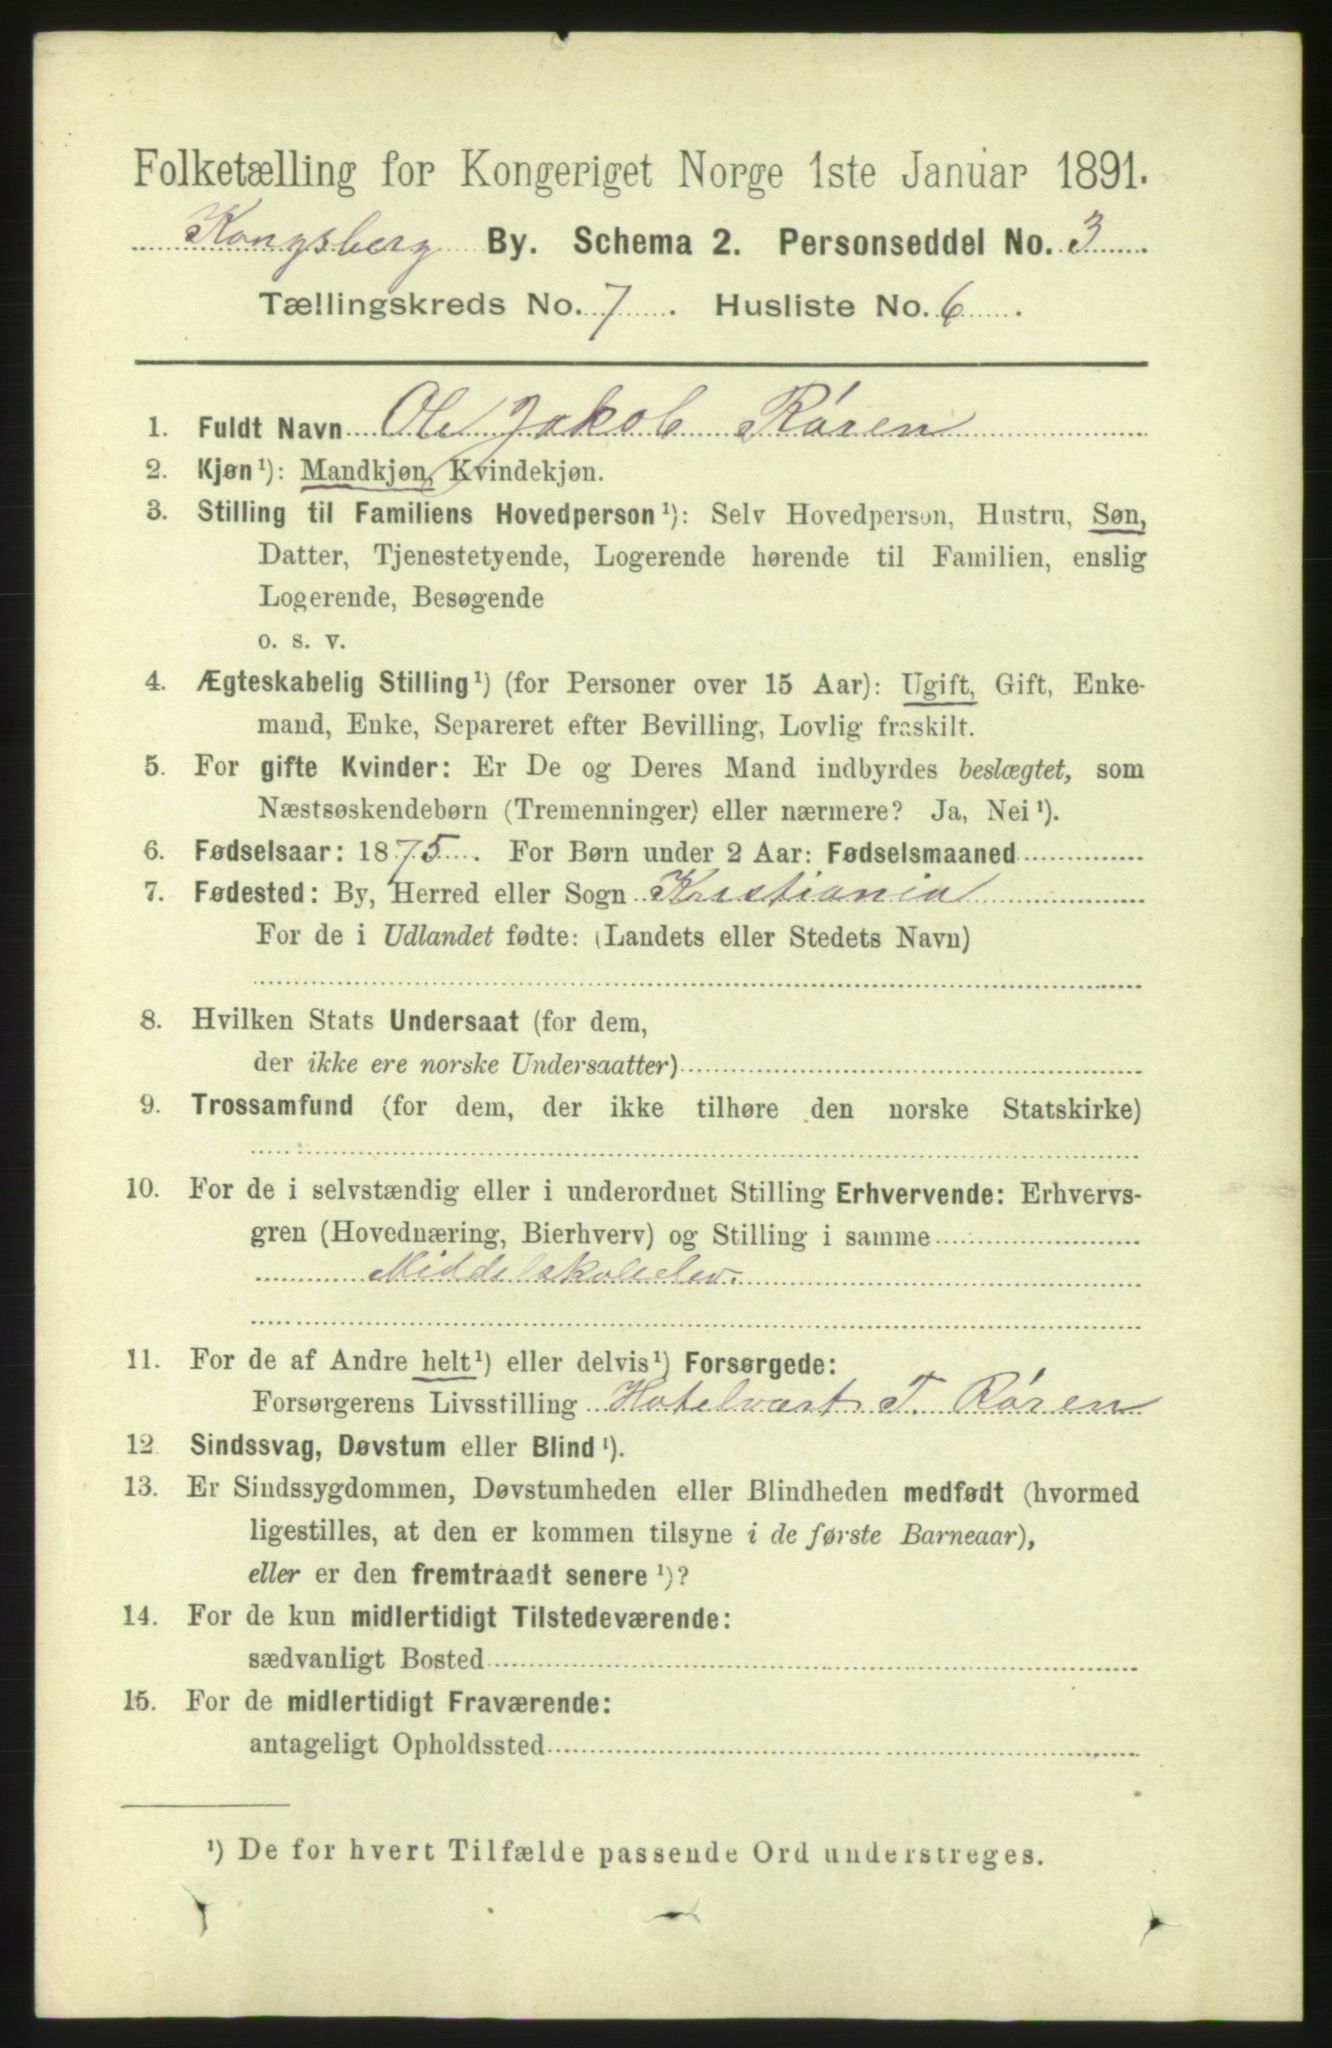 Folketælling for Kongeriget Norge 1ste Januar 1891.
Kongsberg By. Schema 2. Personseddel No. 3
Tællingskreds No. 7. Husliste No. 6.
1. Fuldt Navn Ole Jakob Røren
2. Kjøn ¹): Mandkjøn, Kvindekjøn.
3. Stilling til Familiens Hovedperson ¹): Selv Hovedperson, Hustru, Søn,
Datter, Tjenestetyende, Logerende hørende til Familien, enslig
Logerende, Besøgende
o. s. v.
4. Ægteskabelig Stilling ¹) (for Personer over 15 Aar): Ugift, Gift, Enke-
mand, Enke, Separeret efter Bevilling, Lovlig fraskilt.
5. For gifte Kvinder: Er De og Deres Mand indbyrdes beslægtet, som
Næstsøskendebørn (Tremenninger) eller nærmere? Ja, Nei ¹).
6. Fødselsaar: 1875. For Børn under 2 Aar: Fødselsmaaned
7. Fødested: By, Herred eller Sogn Kristiania
For de i Udlandet fødte: (Landets eller Stedets Navn)
8. Hvilken Stats Undersaat (for dem,
der ikke ere norske Undersaatter)
9. Trossamfund (for dem, der ikke tilhøre den norske Statskirke)
10. For de i selvstændig eller i underordnet Stilling Erhvervende: Erhvervs-
gren (Hovednæring, Bierhverv) og Stilling i samme
Middelskoleelev.
11. For de af Andre helt ¹) eller delvis ¹) Forsørgede:
Forsørgerens Livsstilling Hotelvært T. Røren
12 Sindssvag, Døvstum eller Blind ¹).
13. Er Sindssygdommen, Døvstumheden eller Blindheden medfødt (hvormed
ligestilles, at den er kommen tilsyne i de første Barneaar),
eller er den fremtraadt senere ¹)?
14. For de kun midlertidigt Tilstedeværende:
sædvanligt Bosted
15. For de midlertidigt Fraværende:
antageligt Opholdssted
¹) De for hvert Tilfælde passende Ord understreges.